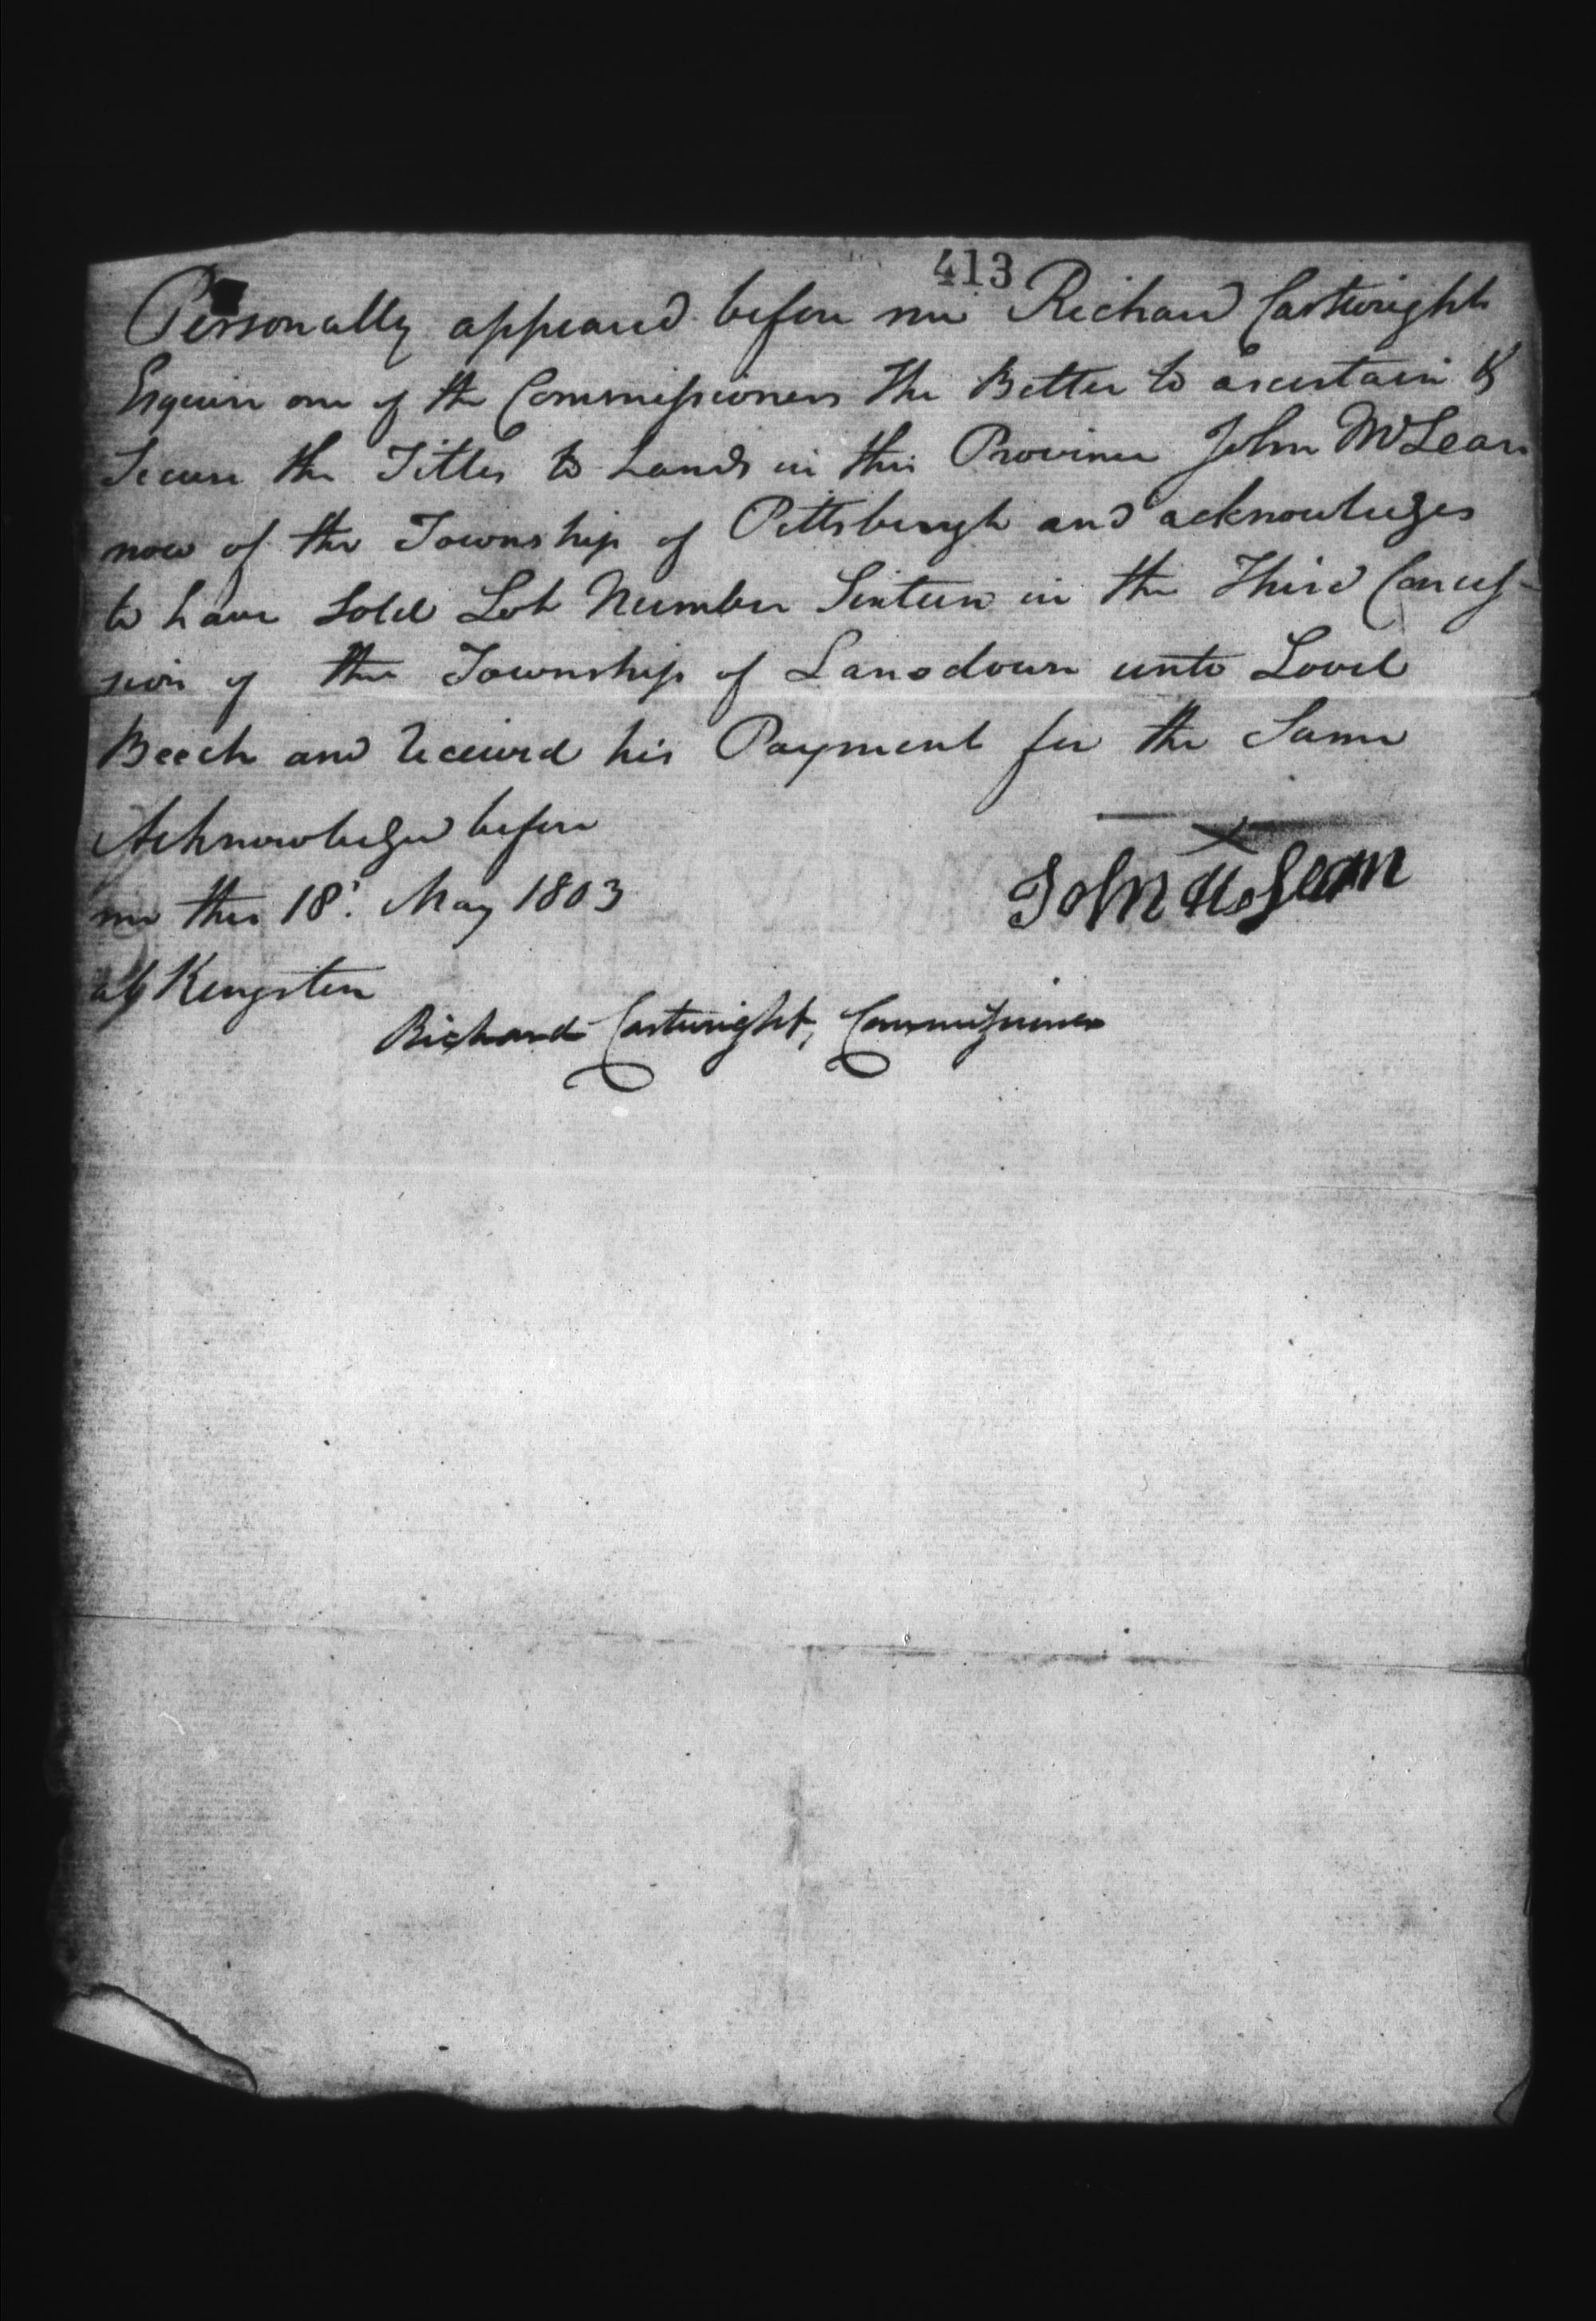 413
Personally appeared before me Richard Cartwright
Esquire one of the Commissioners the Better to ascertain &
Secure the Titles to Lands in this Province John McLean
now of the Township of Pittsburgh and acknowledges
to have Sold Lot Number Sixteen in the Third Conces-
sion of the Township of Lansdown unto Lovel
Beech and received his Payment for the Same
Acknowledged before
me this 18: May 1803
at Kingston
John McLean
Richard Cartwright, Commissioner